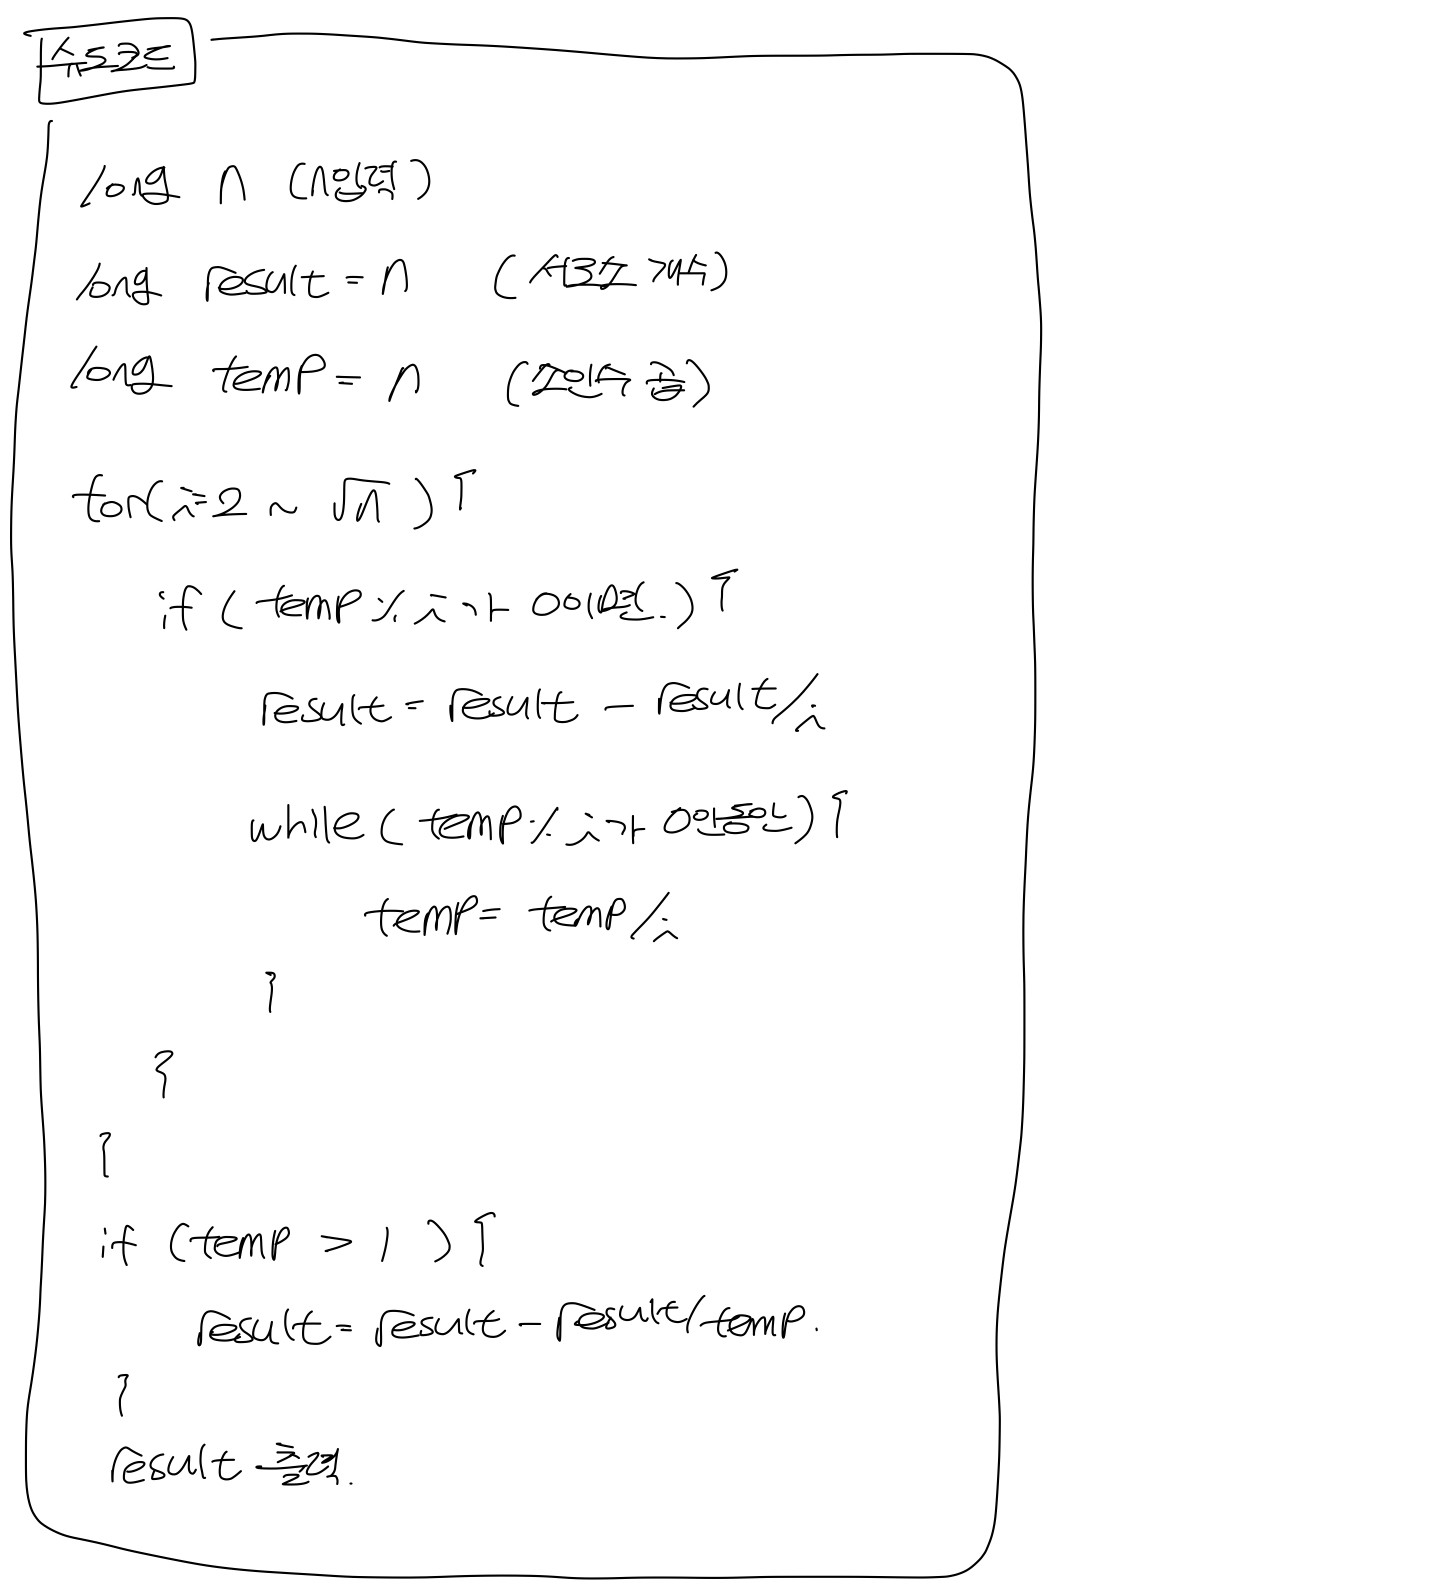 슈도코드
long n (n입력)
long result = n (서로소 개수)
long temp = n (소인수 곱)
for(i=2 ~ √n) {
if ( temp % i가 0이면.) {
result = result - result/i
while ( temp % i가 0인동안) {
temp = temp/i
}
}
}
if (temp > 1 ) {
result = result - result/temp.
}
result 출력.